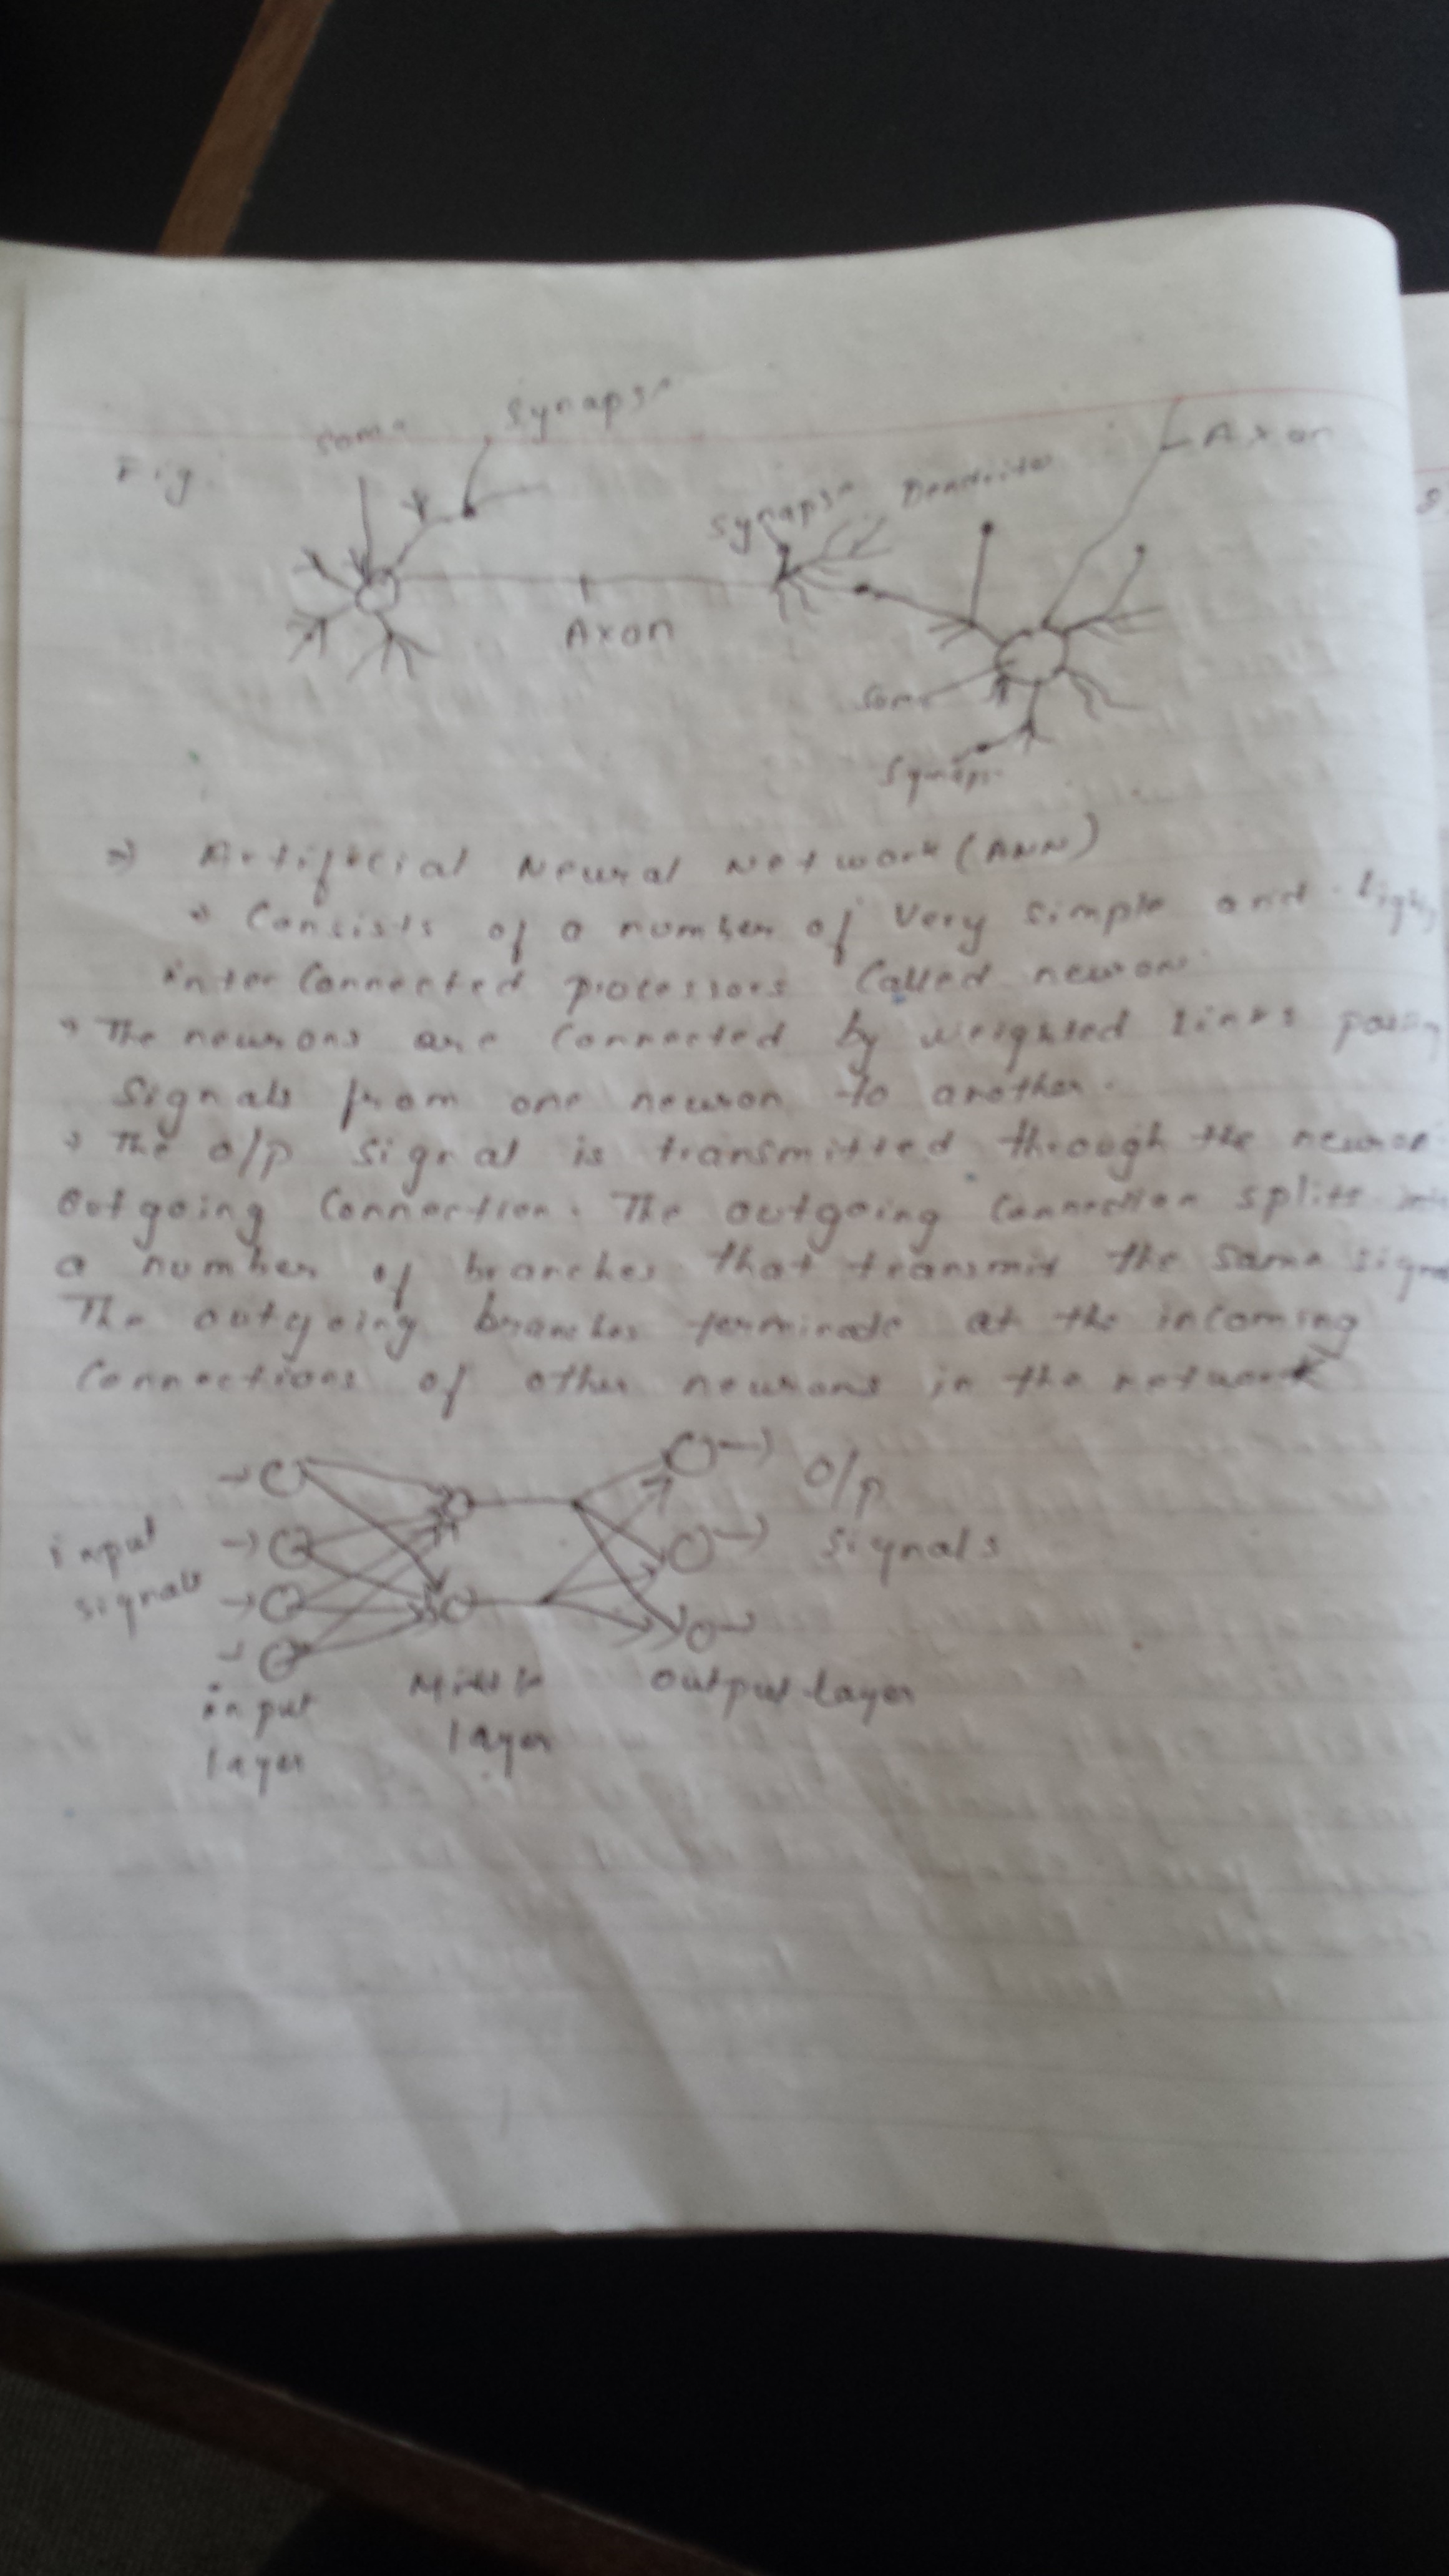 Fig.
Soma
Synapse
Synapse
Dendrites
Axon
Axon
Soma
Synaps
⇒ Artificial Neural Network (ANN)
→ Consists of a number of very simple and
interconnected processors called neurons
→ The neurons are connected by weighted links
signals from one neuron to another.
→ The o/p signal is transmitted through the
outgoing connection. The outgoing connection splits
a number of branches that transmit the same
The outgoing branches terminate at the incoming
connections of other neurons in the network
input
signals
O/p
signals
input
layer
Middle
layer
output layer